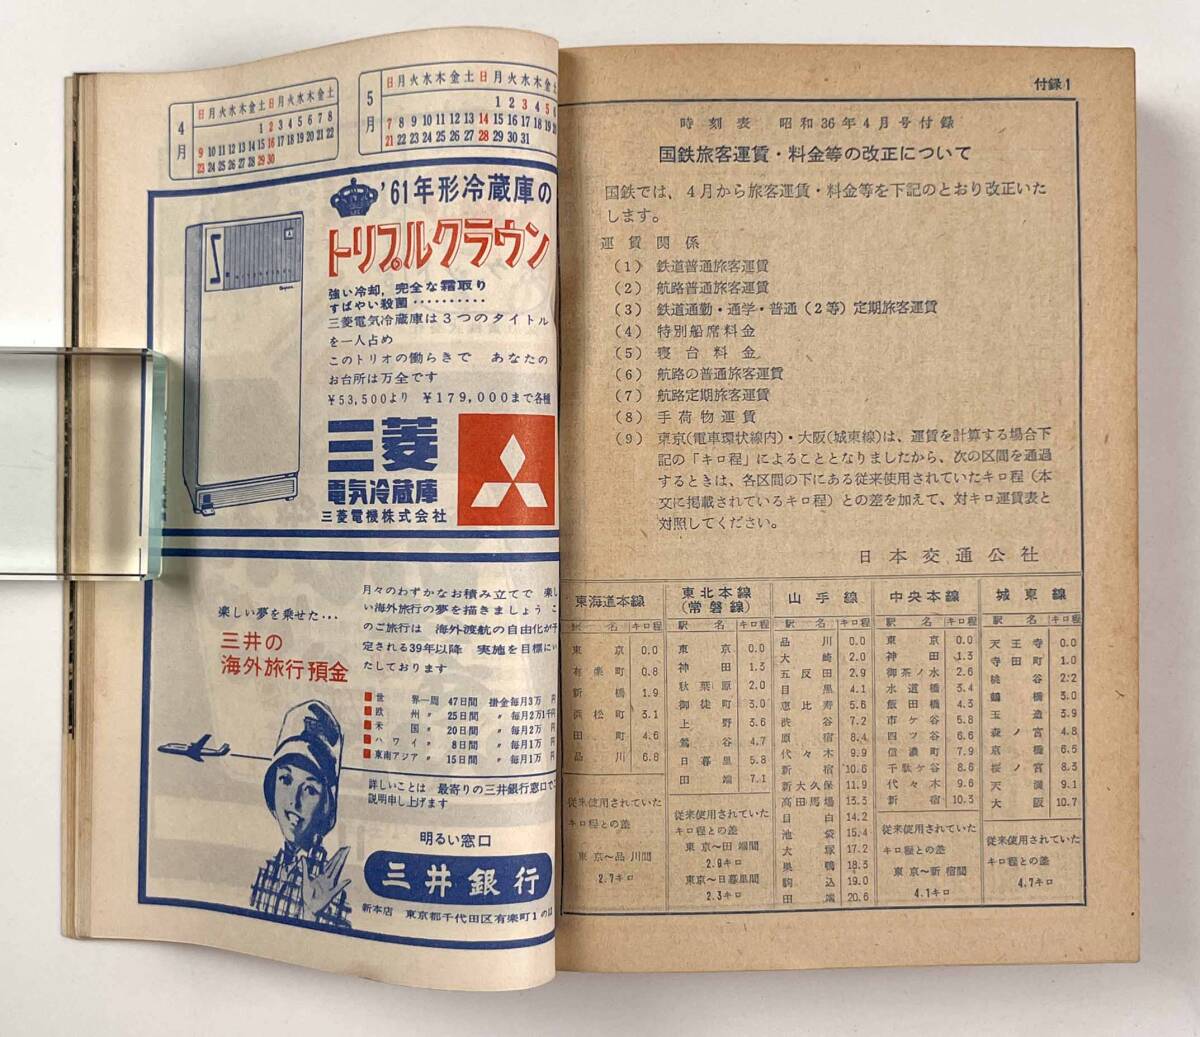 4月
日月火水木金土日月火水木金土
1 2 3 4 5 6 7 8
9 10 11 12 13 14 15 16 17 18 19 20 21 22
23 24 25 26 27 28 29 30
5月
日月火水木金土日月火水木金土
1 2 3 4 5
7 8 9 10 11 12 13 14 15 16 17 18 19
21 22 23 24 25 26 27 28 29 30 31
'61年形冷蔵庫の
トリプルクラウン
強い冷却,完全な霜取り
すばやい殺菌・・・・・・・・・・
三菱電気冷蔵庫は3つのタイトル
を一人占め
このトリオの働らきで あなたの
お台所は万全です
¥53,500より ¥179,000まで各種
三菱
電気冷蔵庫
三菱電機株式会社
楽しい夢を乗せた…
三井の
海外旅行預金
月々のわずかなお積み立てで 楽し
い海外旅行の夢を描きましょう こ
のご旅行は 海外渡航の自由化が予
定される39年以降 実施を目標にい
たしております
世界一周 47日間 掛金毎月3万円
欧州 〃 25日間 〃 毎月2万1千円
米国 〃 20日間 〃 毎月2万円
ハワイ 〃 8日間 〃 毎月1万円
東南アジア 〃 15日間 〃 毎月1万円
詳しいことは 最寄りの三井銀行窓口でご
説明申し上げます
明るい窓口
三井銀行
新本店 東京都千代田区有楽町1の12
付録1
時刻表 昭和36年4月号付録
国鉄旅客運賃・料金等の改正について
国鉄では、4月から旅客運賃・料金等を下記のとおり改正いた
します。
運賃関係
(1) 鉄道普通旅客運賃
(2) 航路普通旅客運賃
(3) 鉄道通勤・通学・普通(2等)定期旅客運賃
(4) 特別船席料金
(5) 寝台料金
(6) 航路の普通旅客運賃
(7) 航路定期旅客運賃
(8) 手荷物運賃
(9) 東京(電車環状線内)・大阪(城東線)は、運賃を計算する場合下
記の「キロ程」によることとなりましたから、次の区間を通過
するときは、各区間の下にある従来使用されていたキロ程(本
文に掲載されているキロ程)との差を加えて、対キロ運賃表と
対照してください。
日本交通公社
東海道本線
駅名 キロ程
東京 0.0
有楽町 0.8
新橋 1.9
浜松町 3.1
田町 4.6
品川 6.8
従来使用されていた
キロ程との差
東京~品川間
2.7キロ
東北本線
(常磐線)
駅名 キロ程
東京 0.0
神田 1.3
秋葉原 2.0
御徒町 3.0
上野 3.6
鶯谷 4.7
日暮里 5.8
田端 7.1
従来使用されていた
キロ程との差
東京~田端間
2.9キロ
東京~日暮里間
2.3キロ
山手線
駅名 キロ程
品川 0.0
大崎 2.0
五反田 2.9
目黒 4.1
恵比寿 5.6
渋谷 7.2
原宿 8.4
代々木 9.9
新宿 10.6
新大久保 11.9
高田馬場 13.3
目白 14.2
池袋 15.4
大塚 17.2
巣鴨 18.3
駒込 19.0
田端 20.6
中央本線
駅名 キロ程
東京 0.0
神田 1.3
御茶ノ水 2.6
水道橋 3.4
飯田橋 4.3
市ケ谷 5.8
四ツ谷 6.6
信濃町 7.9
千駄ケ谷 8.6
代々木 9.6
新宿 10.3
従来使用されていた
キロ程との差
東京~新宿間
4.1キロ
城東線
駅名 キロ程
天王寺 0.0
寺田町 1.0
桃谷 2.2
鶴橋 3.0
玉造 3.9
森ノ宮 4.8
京橋 6.5
桜ノ宮 8.3
天満 9.1
大阪 10.7
従来使用されていた
キロ程との差
4.7キロ